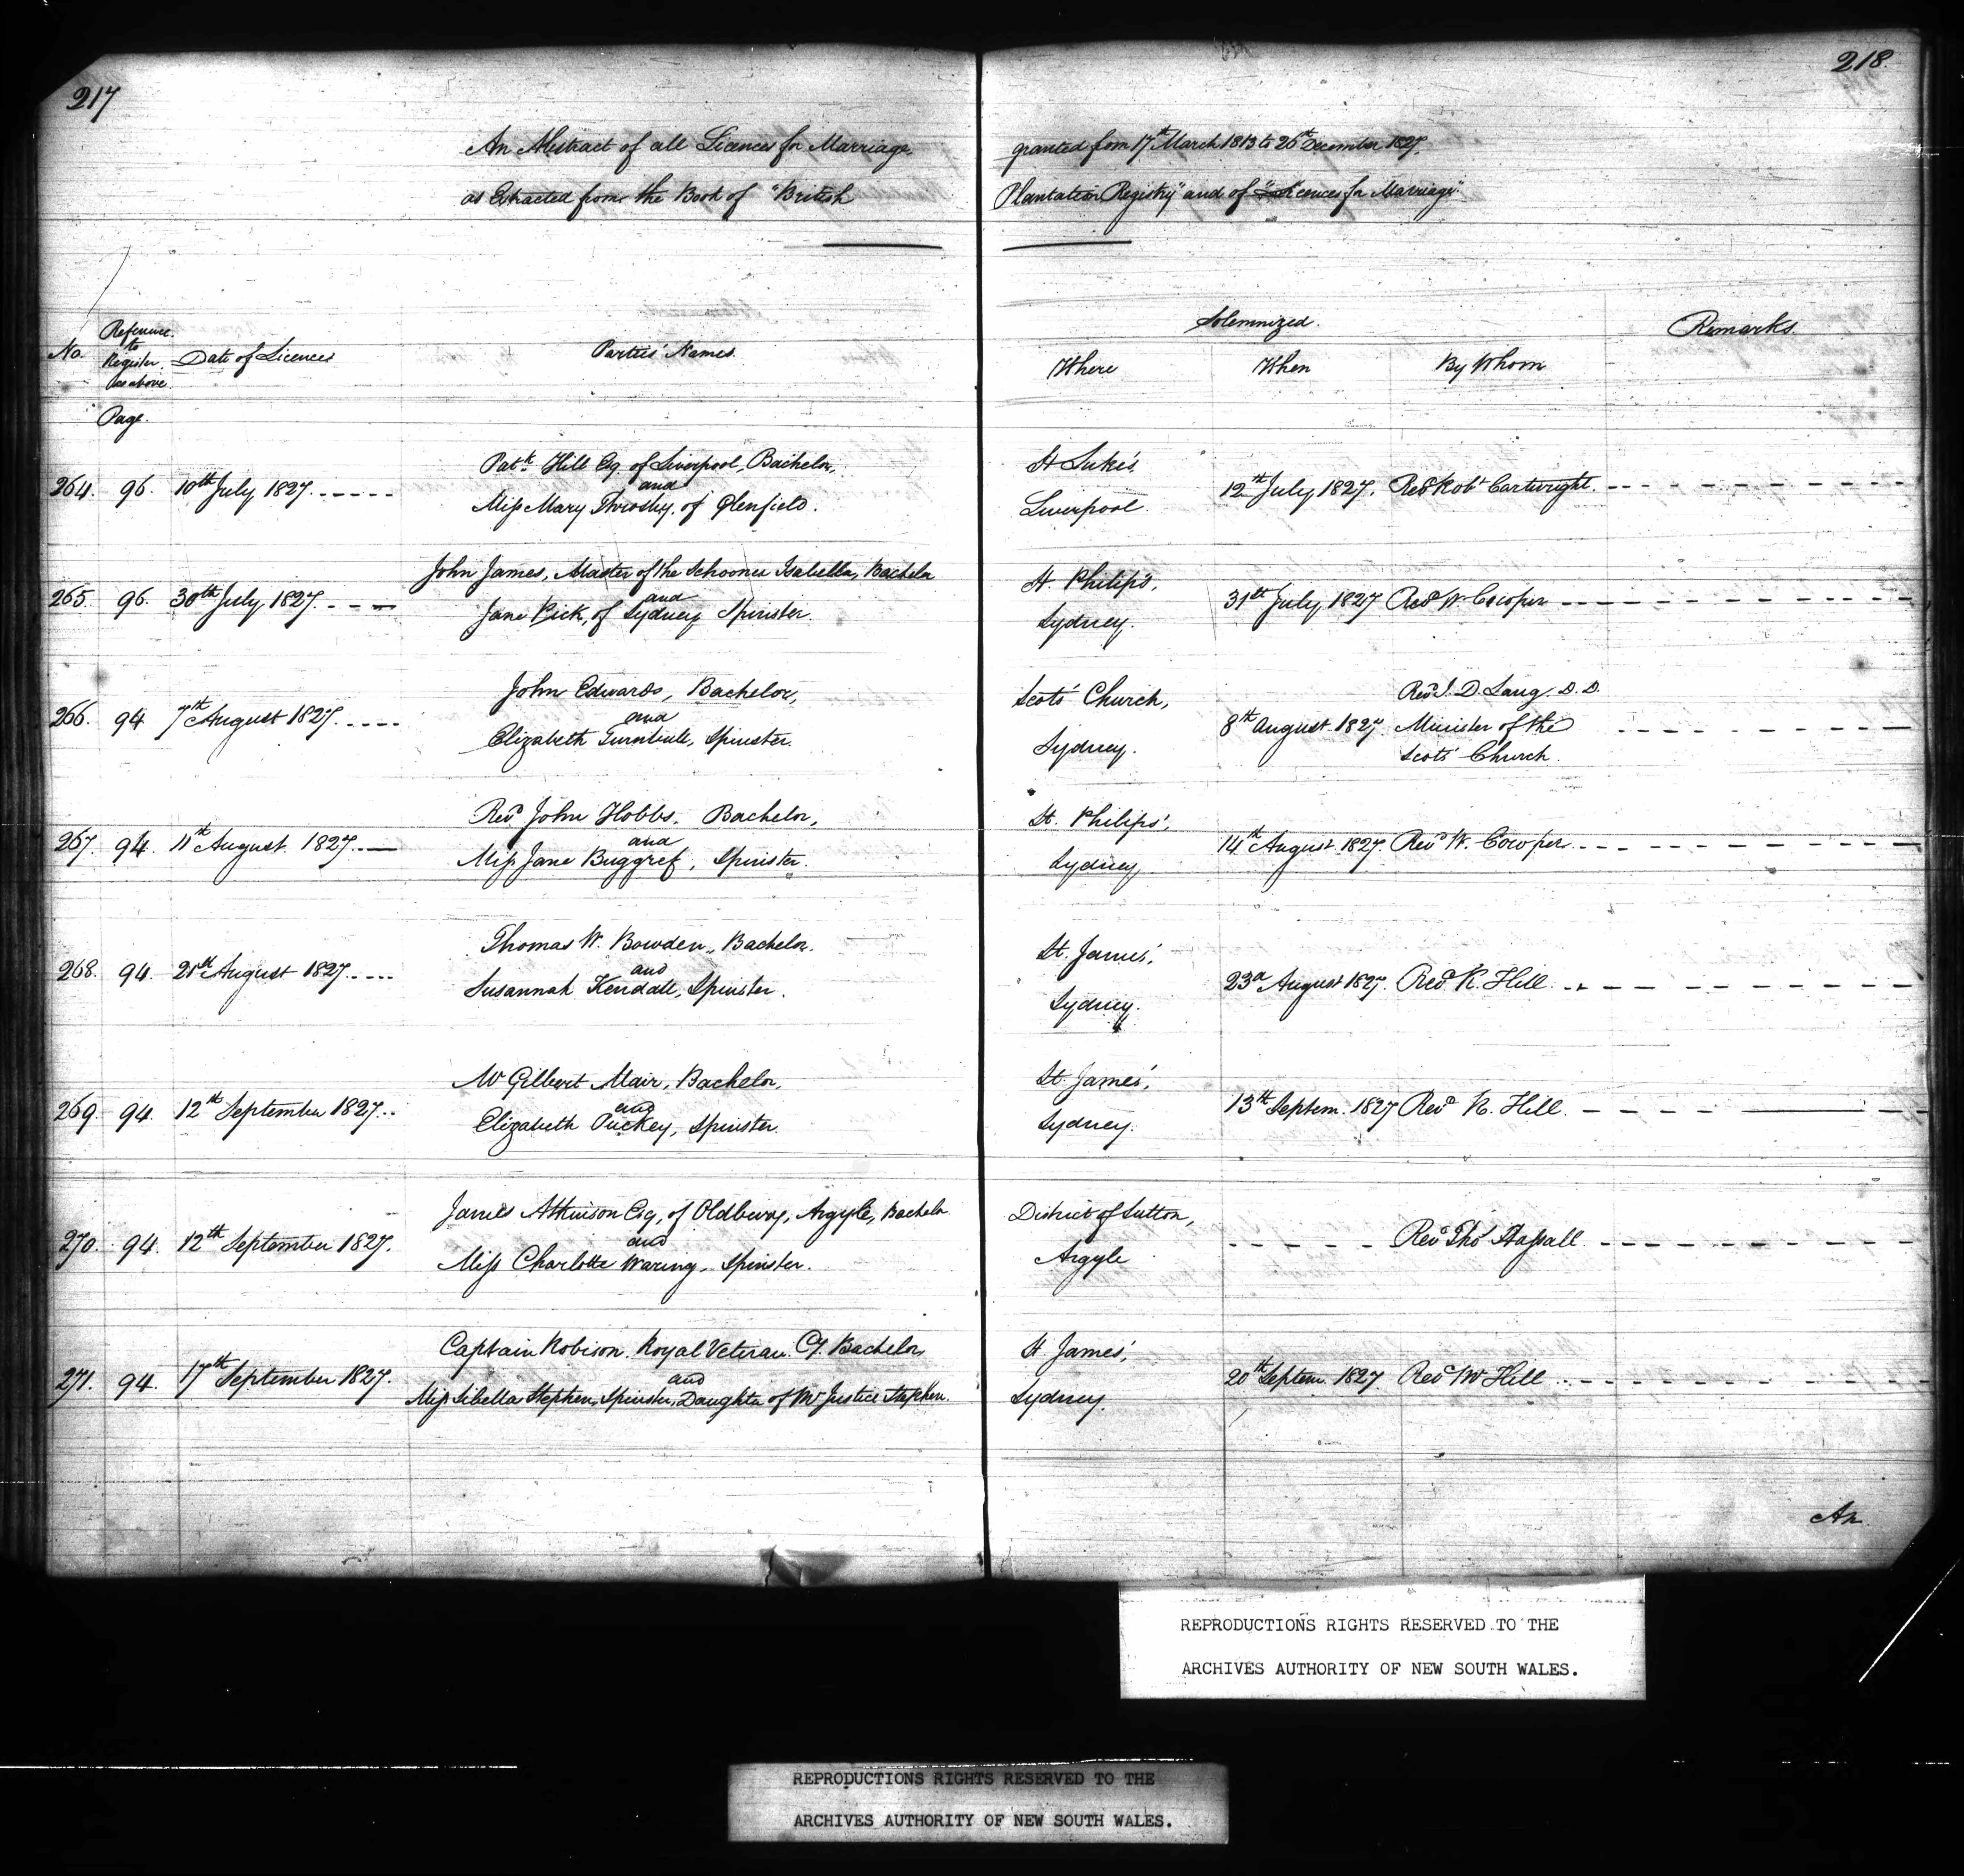 217
218
An Abstract of all Licences for Marriage
granted from 17th March 1813 to 26th December 1827.
as Extracted from the Book of "British
Plantation Registry" and of "Licences for Marriage"
No.
Reference
to
Register
as above.
Page.
Date of Licences
Parties' Names.
Solemnized.
Where
When
By Whom
Remarks.
Patk. Hill Esq. of Liverpool, Bachelor,
St Luke's
264. 96. 10th July 1827.
and
12th July, 1827. Revd Robt Cartwright.
Miss Mary Throsby, of Glenfield.
Liverpool
John James, Master of the Schooner Isabella, Bachelor
St. Philip's,
265. 96. 30th July, 1827.
and
31st July, 1827 Revd W. Cowper
Jane Pick, of Sydney, Spinster.
Sydney.
John Edwards, Bachelor,
Scots' Church,
Revd J. D. Lang. D. D.
266. 94 7th August 1827.
and
8th August 1827. Minister of the
Elizabeth Turnbull, Spinster.
Sydney.
Scots' Church.
Revd John Hobbs. Bachelor,
St. Philips',
267. 94. 11th August. 1827.
and
14th August 1827. Revd W. Cowper
Miss Jane Buggref, Spinster.
Sydney
Thomas W. Bowden, Bachelor.
St. James',
268. 94. 21st August 1827.
and
23d August 1827. Revd R. Hill.
Susannah Kendall, Spinster.
Sydney.
Mr Gilbert Mair, Bachelor,
St. James',
269. 94. 12th September 1827.
and
13th Septem. 1827 Revd R. Hill.
Elizabeth Puckey, Spinster.
Sydney.
James Atkinson Esq, of Oldbury, Argyle, Bachelor
District of Sutton,
270. 94. 12th September 1827.
and
Revd Thos Hassall
Miss Charlotte Waring, Spinster.
Argyle
Captain Robison. Royal Veteran Cy. Bachelor,
St James',
271. 94. 17th September 1827.
and
20th Septem. 1827. Revd Mr Hill
Miss Sibella Stephen, Spinster, Daughter of Mr Justice Stephen.
Sydney.
An
REPRODUCTIONS RIGHTS RESERVED TO THE
ARCHIVES AUTHORITY OF NEW SOUTH WALES.
REPRODUCTIONS RIGHTS RESERVED TO THE
ARCHIVES AUTHORITY OF NEW SOUTH WALES.